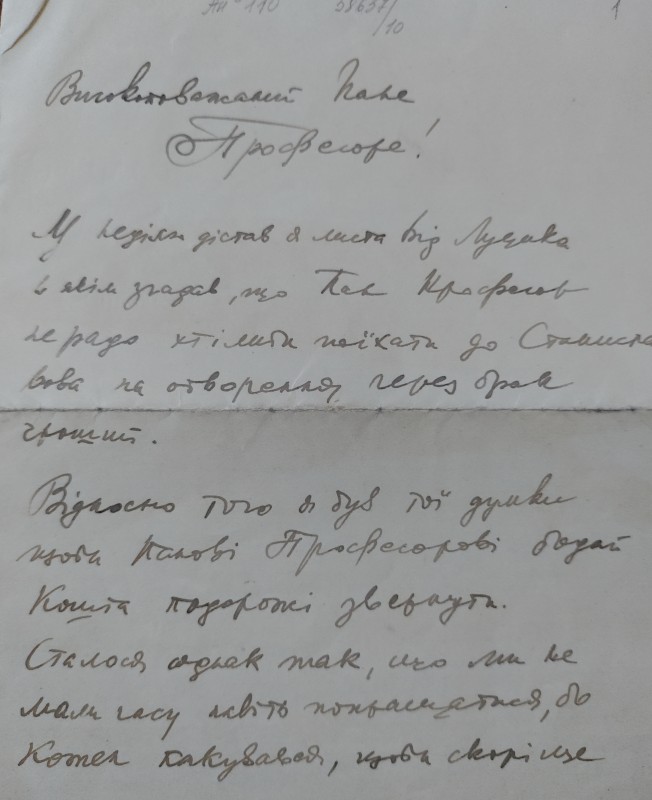 58637/10
1
Високоповажаний Пане
Професоре!
У неділю дістав я листа від Луцика
в якім згадав, що Пан Професор
не радо хтілиби поїхати до Станисла
вова на отворення, через брак
грошит.
Відносно того я був тої думки
щоби Панові Професорові бодай
Кошта подорожі звернути.
Сталося однак так, що ми не
мали часу навіть попращатися, бо
Кожен пакувався, щоби скорійше